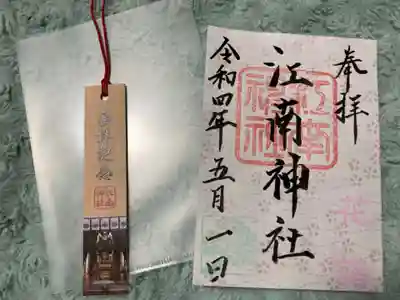 奉拝
江南神社
江南神社
令和四年五月一日
参拝記念